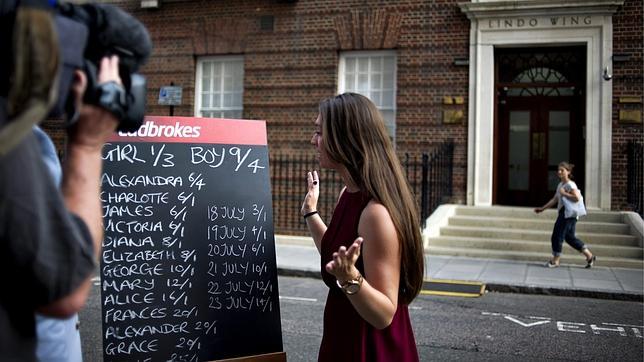 LINDO WING
adbrokes
GIRL 1/3 BOY 9/4
ALEXANDRA 6/4
CHARLOTTE 6/1
JAMES 6/1
18 JULY 3/1
VICTORIA 6/1
19 JULY 4/1
DIANA 8/1
20 JULY 6/1
ELIZABETH 8/1
21 JULY 10/1
GEORGE 10/1
22 JULY 12/1
MARY 12/1
23 JULY 14/1
ALICE 16/1
FRANCES 20/1
ALEXANDER 20/1
GRACE 20/1